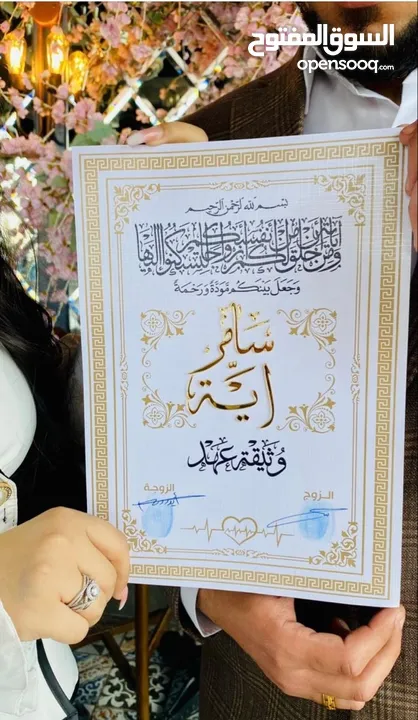 السوق المفتوح
opensooq.com
بسم الله الرحمن الرحيم
ومن آياته أن خلق لكم من أنفسكم أزواجا لتسكنوا إليها
وَجَعَلَ بَيْنَكُم مَّوَدَّةً وَرَحْمَةً
سافر
اية
وثيقة عهد
الزوج
الزوجة